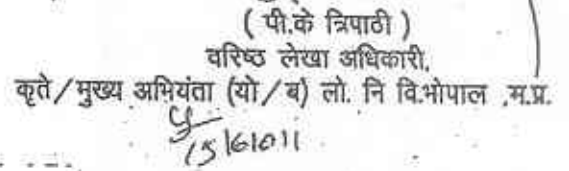 ( पी.के त्रिपाठी )
वरिष्ठ लेखा अधिकारी,
कृते/मुख्य अभियंता (यो/ब) लो. नि वि.भोपाल ,म.प्र.
15/6/011